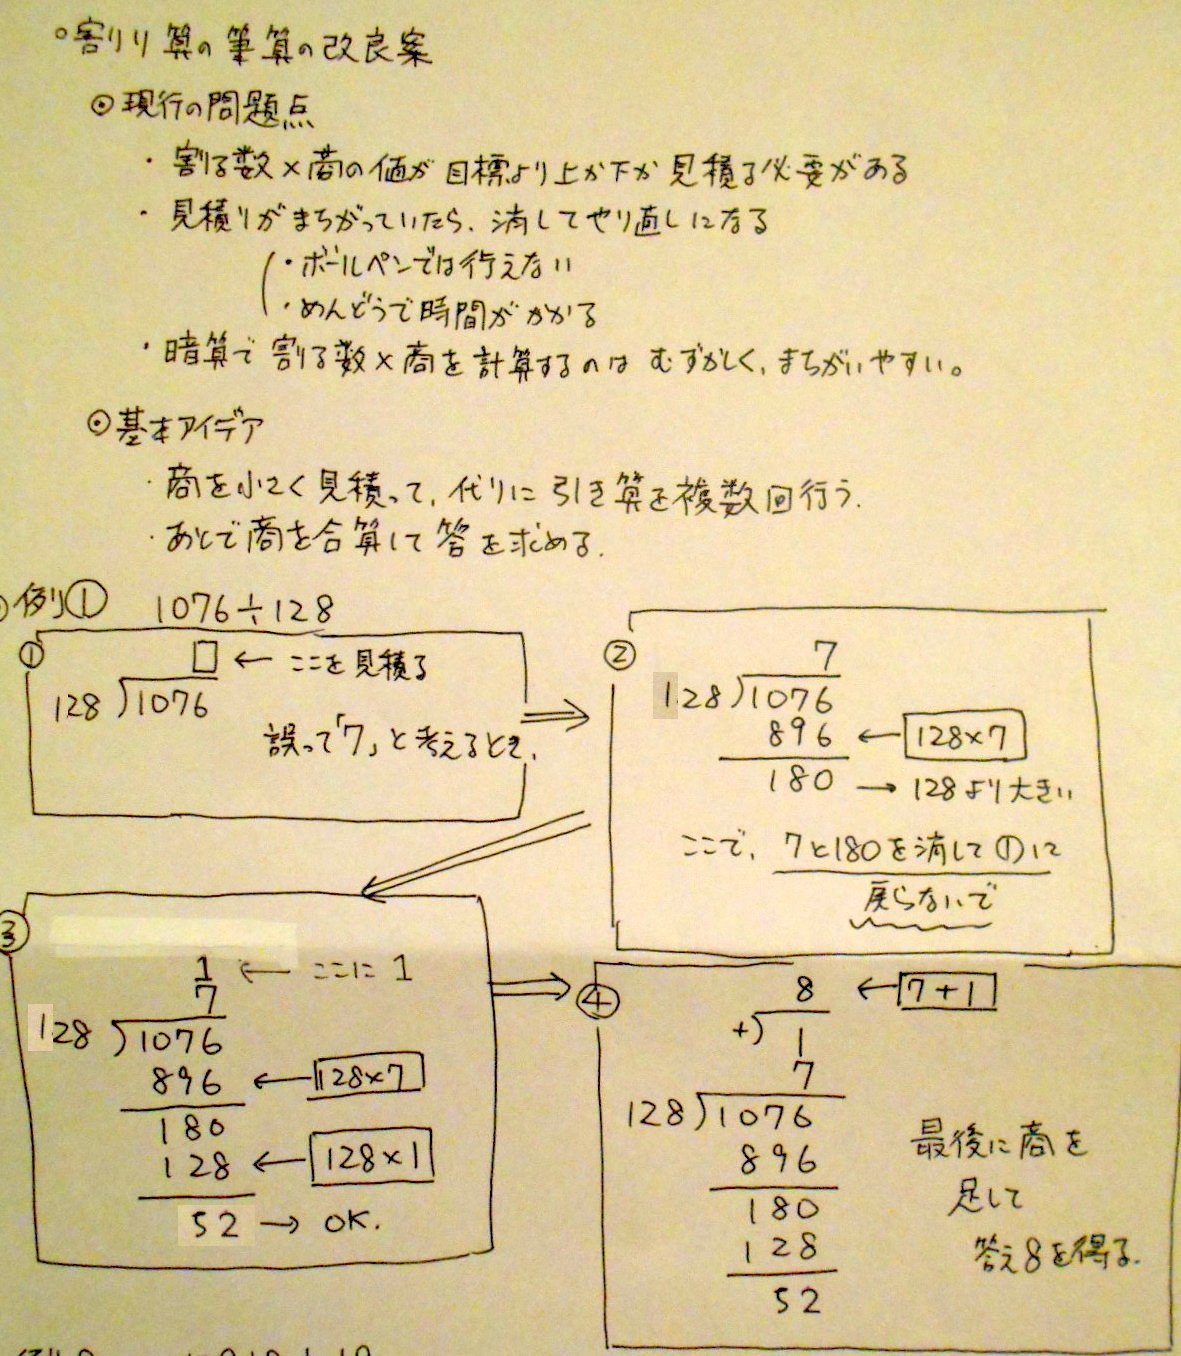 ○割りり算の筆算の改良案
◉現行の問題点
・割る数×商の値が目標より上か下か見積る必要がある
・見積りがまちがっていたら、消してやり直しになる
・ボールペンでは行えない
・めんどうで時間がかかる
・暗算で割る数×商を計算するのはむずかしく、まちがいやすい。
◉基本アイデア
・商を小さく見積って、代りに引き算を複数回行う.
・あとで商を合算して答を求める.
例① 1076÷128
①
□ ← ここを見積る
128)1076
誤って「7」と考えるとき、
②
7
128)1076
896 ← 128×7
180 → 128より大きい
ここで、7と180を消して①に
戻らないで
③
1 ← ここに1
7
128)1076
896 ← 128×7
180
128 ← 128×1
52 → OK.
④
8 ← 7+1
+)1
7
128)1076
896
180
128
52
最後に商を
足して
答え8を得る.